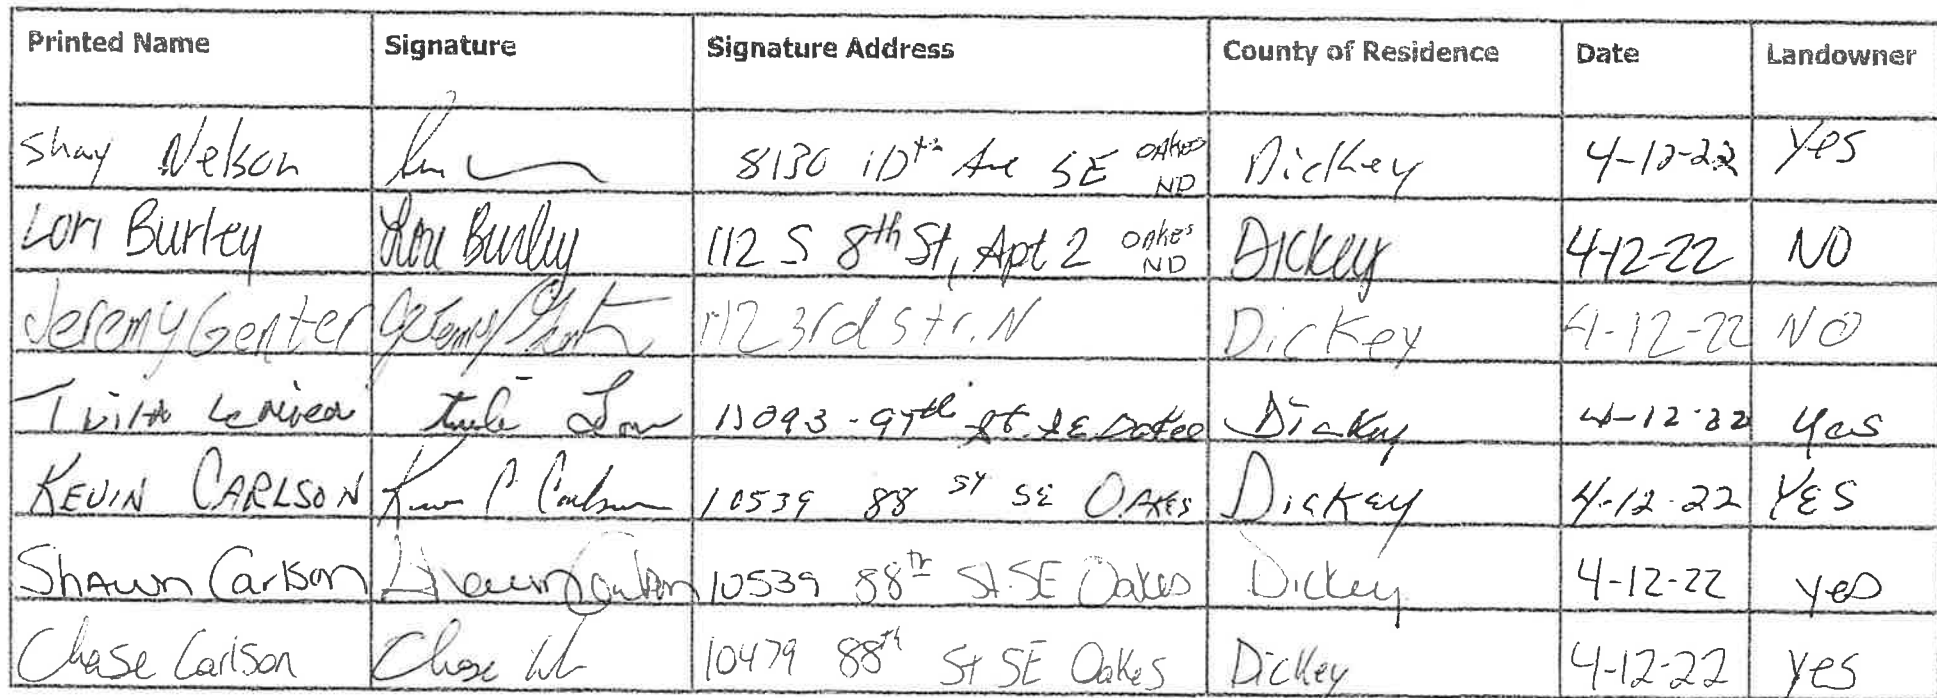 Printed Name Signature Signature Address County of Residence Date Landowner
Shay Nelson 8130 Ave SE Oakes ND Dickey 4-12-22 Yes
Lori Burley Lori Burley 112 S 8th St, Apt 2 Oakes ND Dickey 4-12-22 NO
Jeremy Genter Jeremy 112 3rd Str. N Dickey 4-12-22 NO
11093 - 97th St. SE Oakes Dickey 4-12-22 Yes
KEVIN CARLSON Kevin P Carlson 10539 88 St SE OAKES Dickey 4-12-22 YES
Shawn Carlson Shawn Carlson 10539 88th St. SE Oakes Dickey 4-12-22 yes
Chase Carlson Chase 10479 88th St SE Oakes Dickey 4-12-22 yes